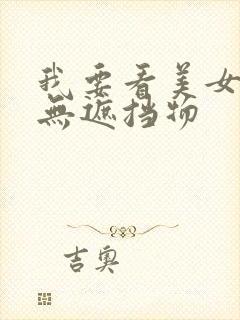 我要看美女
無遮挡物
吉奥